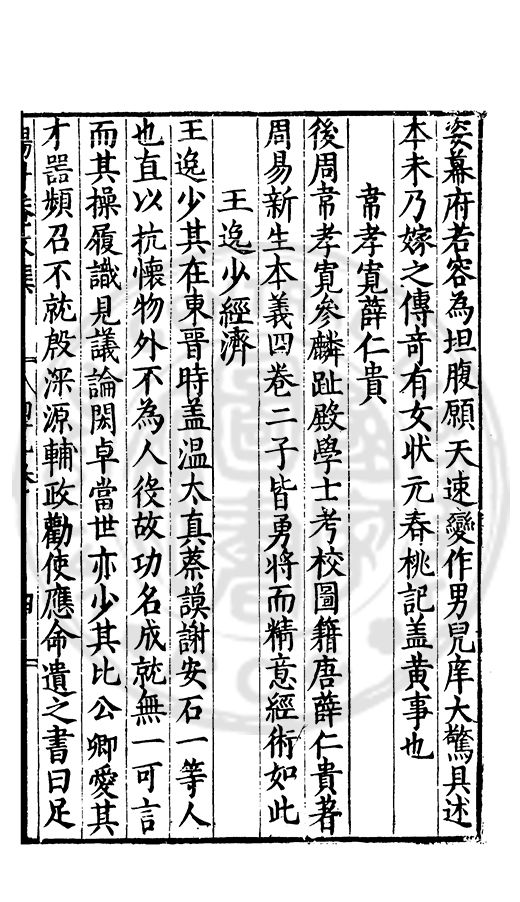 姿幕府若容為坦腹願天速變作男兒庠大驚具述
本末乃嫁之傳竒有女狀元春桃記盖黄事也
韋孝寛薛仁貴
後周韋孝寛參麟趾殿學士考校圖籍唐薛仁貴著
周易新生本義四卷二子皆勇將而精意經術如此
王逸少經濟
王逸少其在東晉時盖温太真蔡謨謝安石一等人
也直以抗懐物外不為人役故功名成就無一可言
而其操履識見議論閎卓當世亦少其比公卿愛其
才器頻召不就殷深源輔政勸使應命遺之書曰足